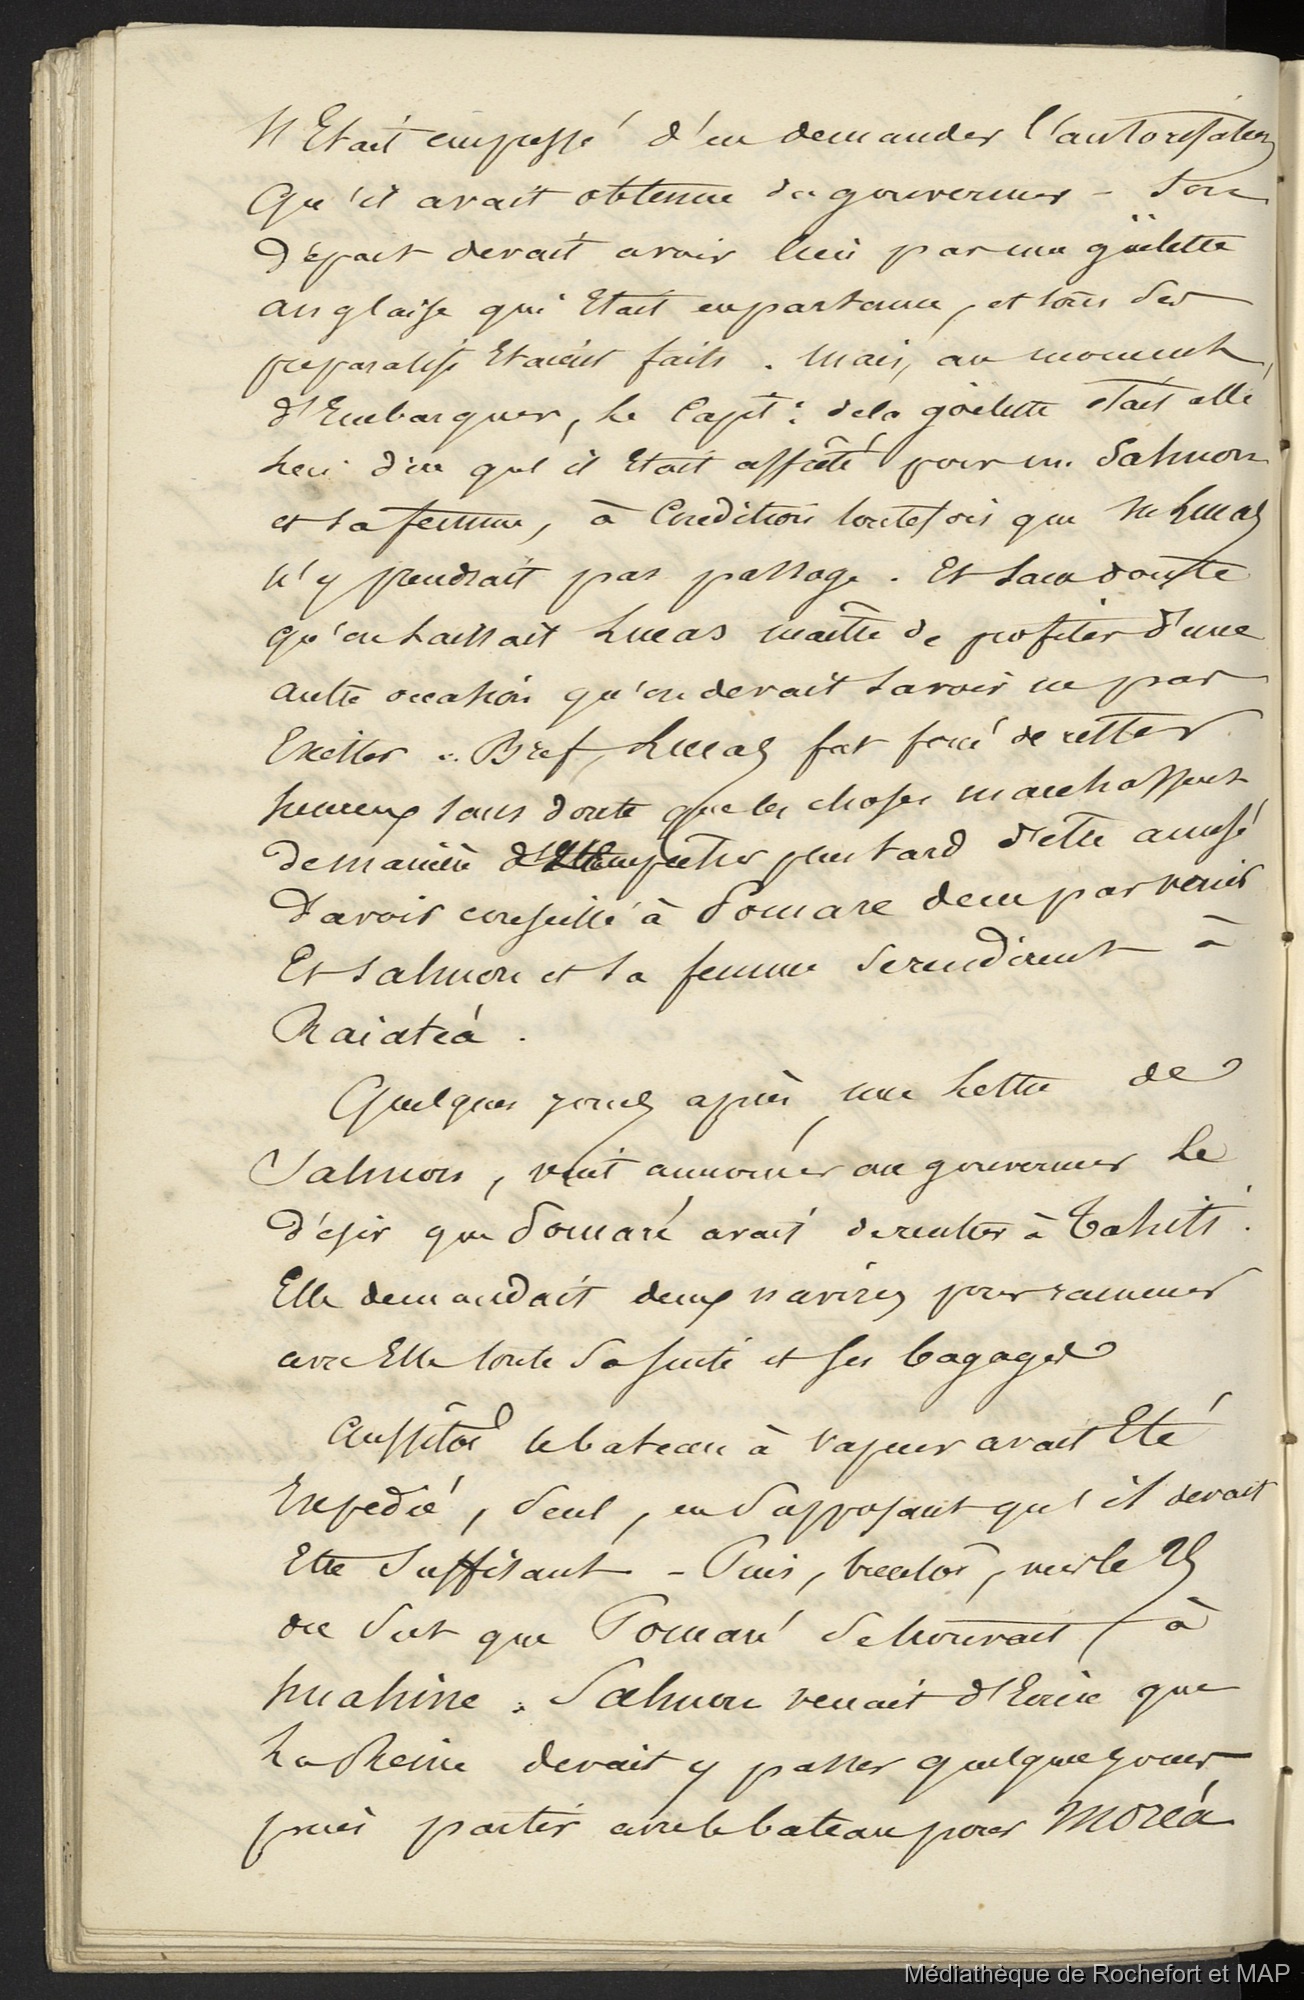 s'Etait empressé d'en demander l'autorisation
Qu'il avait obtenue du gouverneur - Son
Départ devait avoir lieu par une goëlette
anglaise qui Etait en partance, et tous Ses
preparatifs Etaient faits. Mais, au moment
d'Embarquer, le Capit: de la goëlette était allé
lui dire qu'il Etait affrété pour m. Salmon
et sa femme, à Condition toutefois que M Lucas
n'y prendrait pas passage. Et sans doute
qu'on laissait Lucas maître de profiter d'une
autre occasion qu'on devait savoir ne pas
Exister. Bref, Lucas fut forcé de rester
heureux sans doute que les choses marchassent
de manière d'empêcher plus tard d'être accusé
D'avoir conseillé à Pomare de ne pas venir
Et Salmon et sa femme Se rendirent à
Raiatéa.
Quelques jours après, une lettre de
Salmon, vint annoncer au gouverneur le
désir que Pomaré avait de rentrer à Tahiti.
Elle demandait deux navires pour ramener
avec Elle toute Sa suite et ses bagages
Aussitôt le bateau à vapeur avait Eté
Expedié, Seul, en Supposant qu'il devait
Etre Suffisant - Puis, bientôt, vers le 25
on Sut que Pomaré Se trouvait à
huahine. Salmon venait d'Ecrire que
La Reine devait y passer quelques jours
puis partir avec le bateau pour Moréa
Médiathèque de Rochefort et MAP